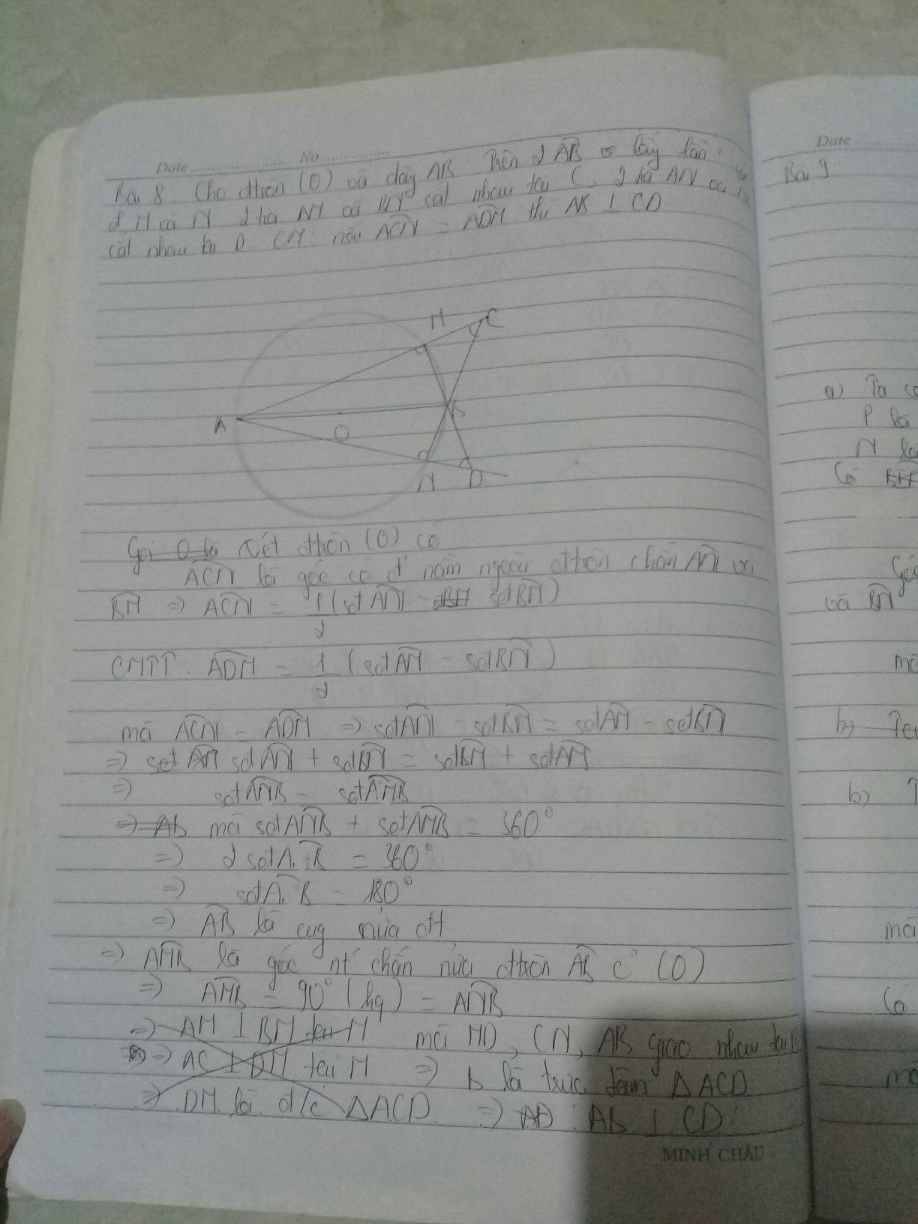 Date No
Bài 8. Cho đtròn (O) và dây AB. Trên 2 AB lấy lần
đ M và N. 2 hai AM và cắt nhau tại C. 2 hai AN và
cắt nhau tại D CM: nếu ACN = ADM thì AB ⊥ CD
M C
A B
O
N D
Xét đtròn (O) có
ACN là góc có đ nằm ngoài đtròn chắn AN và
BM => ACN = 1/2 (sđAN - sđBM)
CMTT: ADM = 1/2 (sđAM - sđBN)
mà ACN = ADM => sđAN - sđBM = sđAM - sđBN
=> sđAN + sđBN = sđBM + sđAM
=> sđANB = sđAMB
mà sđANB + sđAMB = 360°
=> 2 sđA B = 360°
=> sđA B = 180°
=> AB là cug nửa đt
=> AMB là góc nt chắn nửa đtròn AB (O)
=> AMB = 90° (hq) = ANB
=> AM ⊥ BM tại M mà MD, CN, AB giao nhau tại
=> AC ⊥ DM tại M => B là trực tâm ΔACD
=> DM là đ/c ΔACD => AB ⊥ CD
MINH CHÂU
Date
Bài 9
a) Ta có
P là
N là
Có
Góc
và BN
mà
b) Ta
b) T
mà
Có
mà